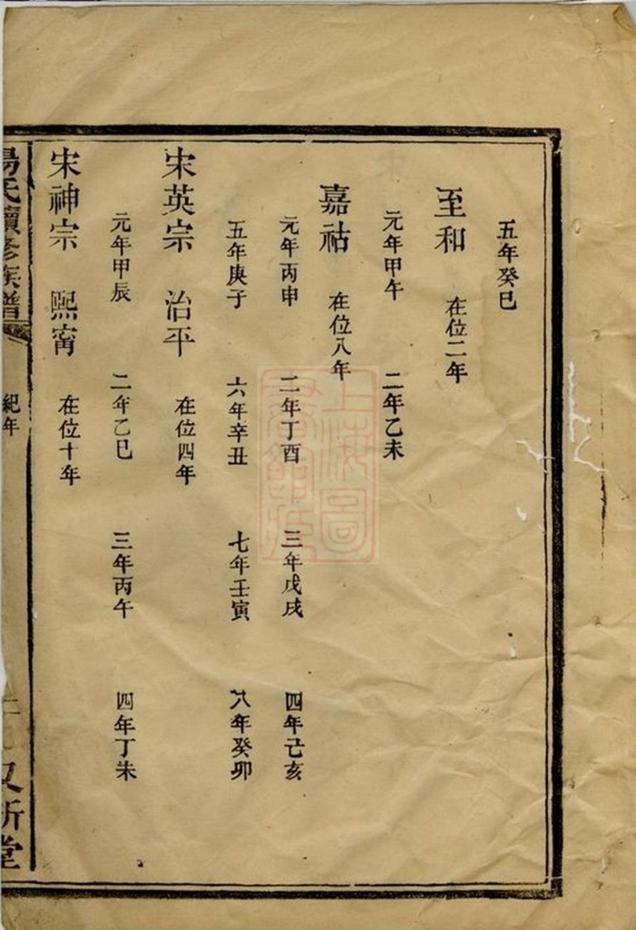 五年癸巳
至和 在位二年
元年甲午 二年乙未
嘉祐 在位八年
元年丙申 二年丁酉 三年戊戌 四年己亥
五年庚子 六年辛丑 七年壬寅 八年癸卯
宋英宗 治平 在位四年
元年甲辰 二年乙巳 三年丙午 四年丁未
宋神宗 熙甯 在位十年
氏續修族譜 紀年 又新堂